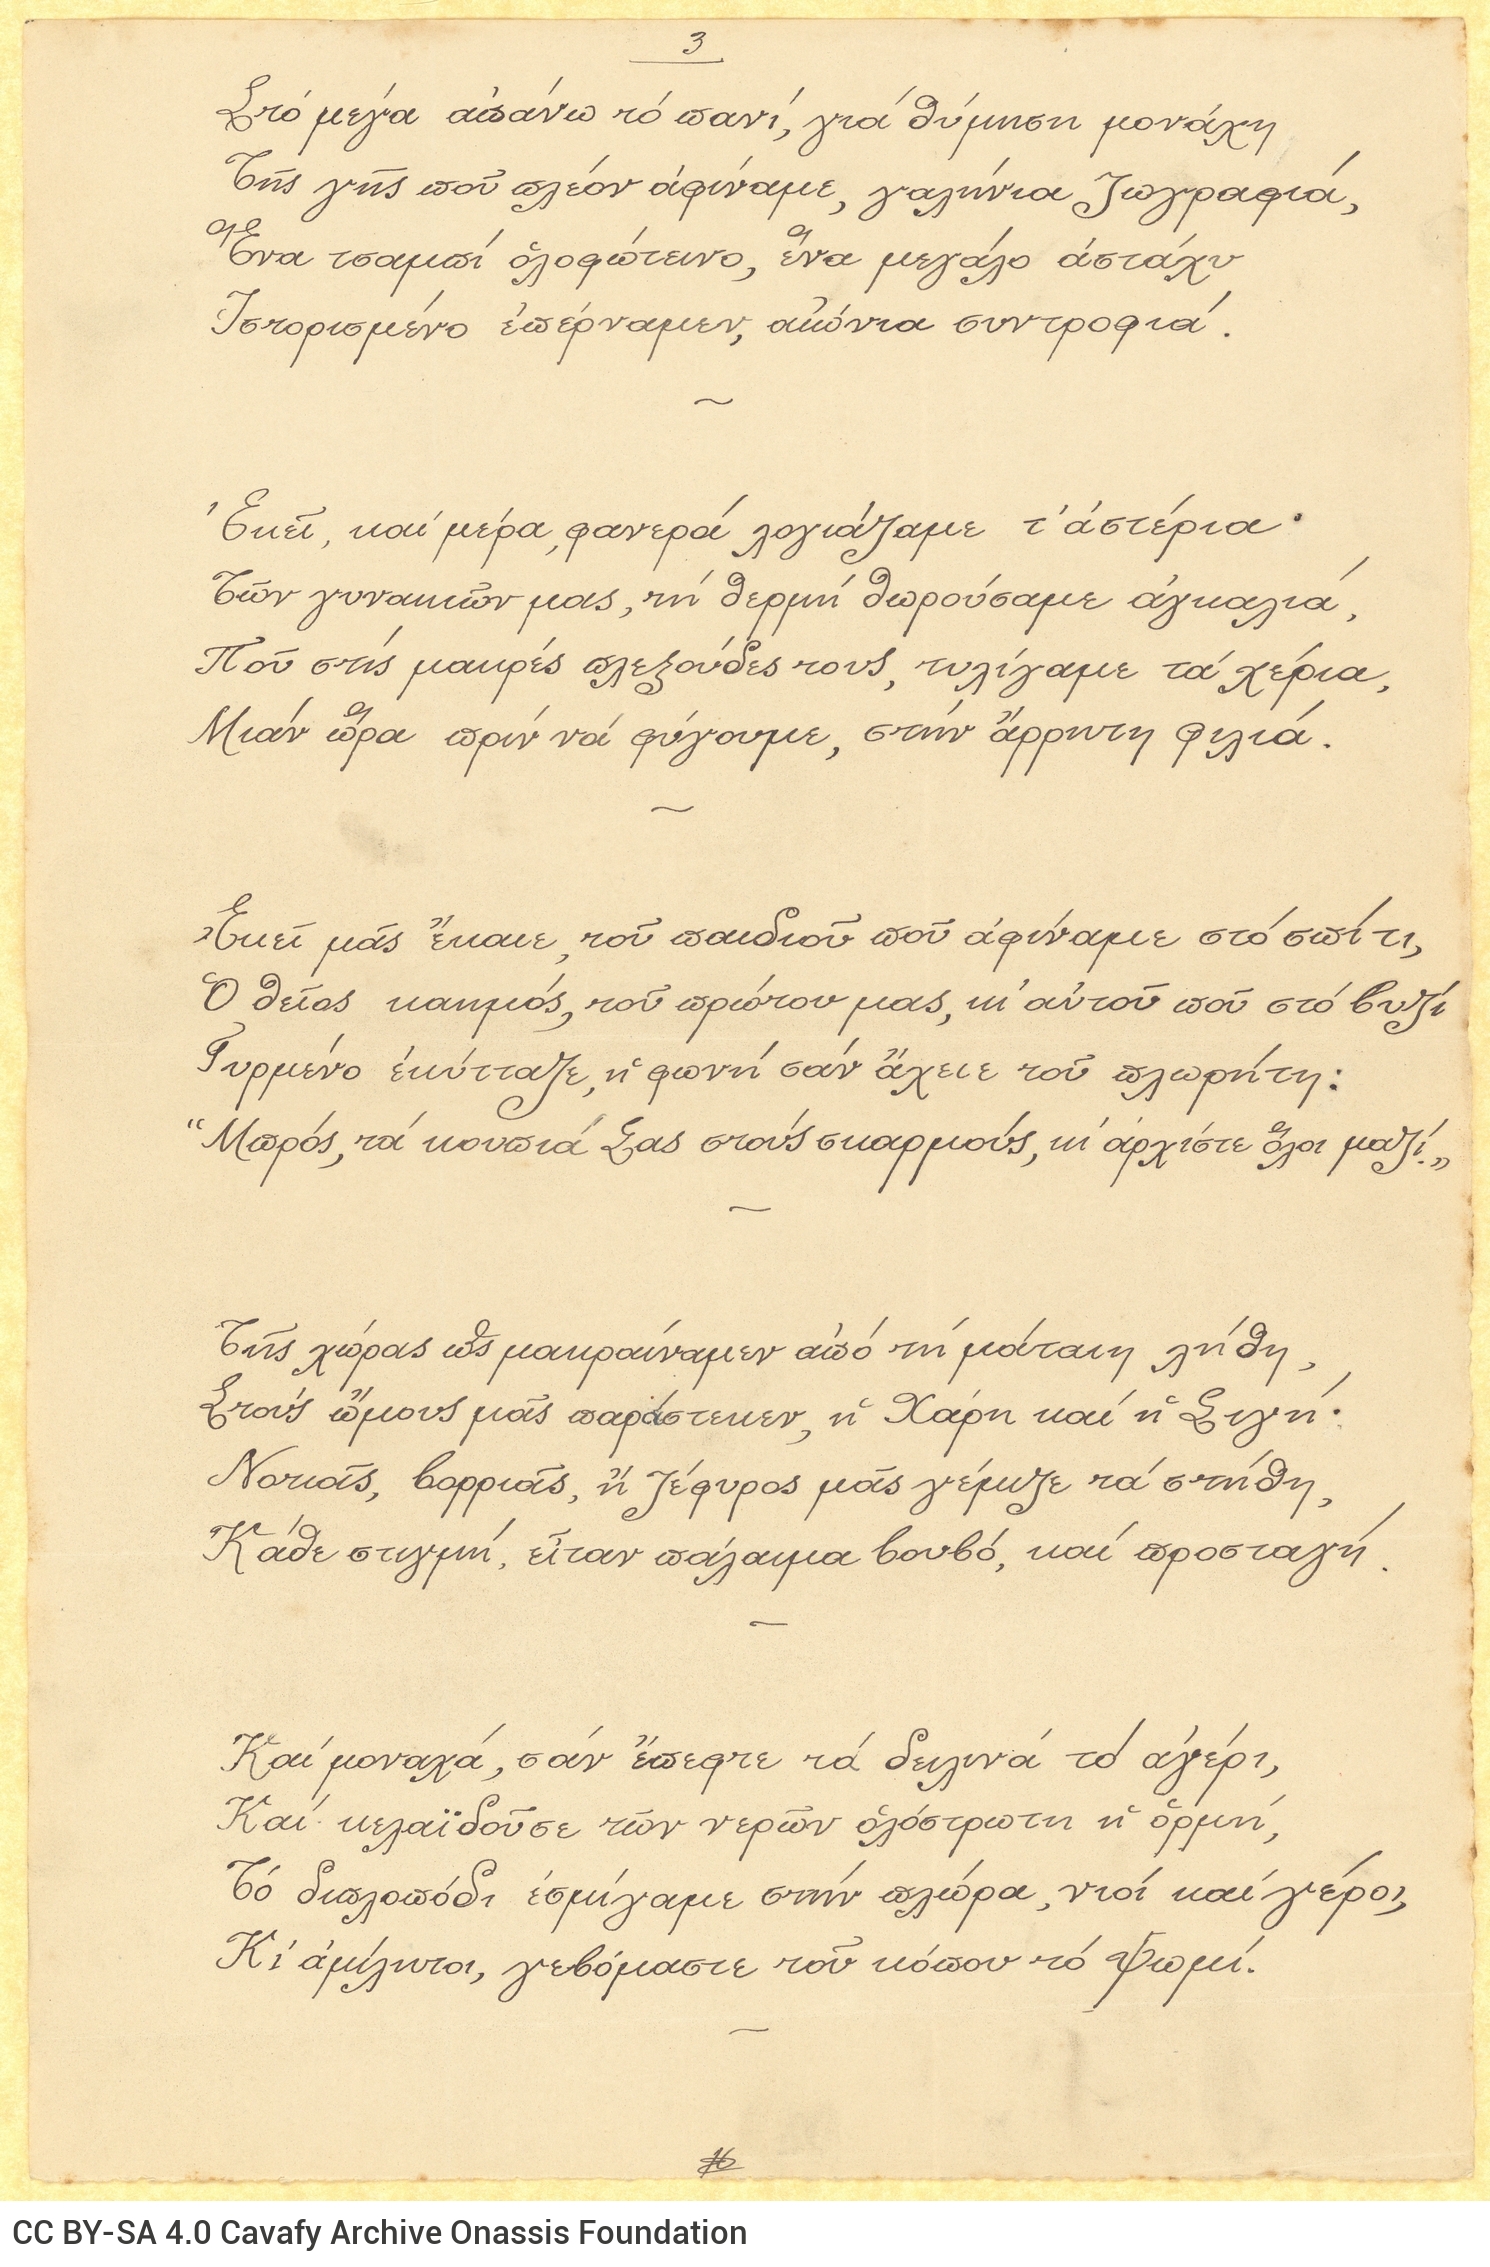 3
Στό μεγα απάνω τό πανί, γιά θύμηση μονάχη
Τῆς γῆς ποῦ πλέον ἀφίναμε, γαλήνια ζωγραφιά,
Ἕνα τσαμπί ὁλοφώτεινο, ἕνα μεγάλο ἀστάχυ
Ἱστορισμένο ἐπέρναμεν, αἰώνια συντροφιά.
~
Ἐκεῖ, καί μέρα, φανερά λογιάζαμε τ' ἀστέρια·
Τῶν γυναικῶν μας, τή θερμή θωρούσαμε ἀγκαλιά,
Ποῦ στίς μακρές πλεξοῦδες τους, τυλίγαμε τά χέρια,
Μιάν ὥρα πρίν νά φύγουμε, στήν ἄρρητη φιλιά.
~
Ἐκεῖ μᾶς ἔκαιε, τοῦ παιδιοῦ ποῦ ἀφίναμε στό σπίτι,
Ὁ θεῖος καημός, τοῦ πρώτου μας, κι' αὐτοῦ ποῦ στό βυζί
Γυρμένο ἐκύτταζε, ἡ φωνή σάν ἄχειε τοῦ πλωρήτη:
"Μπρός, τά κουπιά Σας στούς σκαρμούς, κι' ἀρχίστε ὅλοι μαζί.„
~
Τῆς χώρας ὡς μακραίναμεν ἀπό τή μάταιη λήθη,
Στούς ὤμους μᾶς παράστεκεν, ἡ Χάρη καί ἡ Σιγή·
Νοτιᾶς, βορριᾶς, ἤ ζέφυρος μᾶς γέμιζε τά στήθη,
Κάθε στιγμή, εἶταν πάλαιμα βουβό, καί προσταγή.
~
Καί μοναχά, σάν ἔπεφτε τά δειλινά τό ἀγέρι,
Καί κελαϊδοῦσε τῶν νερῶν ὁλόστρωτη ἡ ὁρμή,
Τό διπλοπόδι ἐσμίγαμε στήν πλώρα, νιοί καί γέροι,
Κι' ἀμίλητοι, γεβόμαστε τοῦ κόπου τό ψωμί.
~
16
CC BY-SA 4.0 Cavafy Archive Onassis Foundation